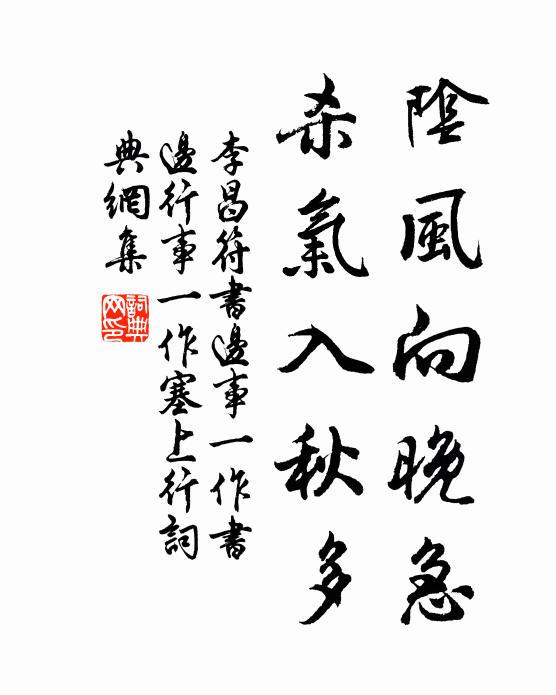 陰風向晚急
杀氣入秋多
李昌符書邊事一作書
邊行事一作塞上行詞
典網集
詞典
网印